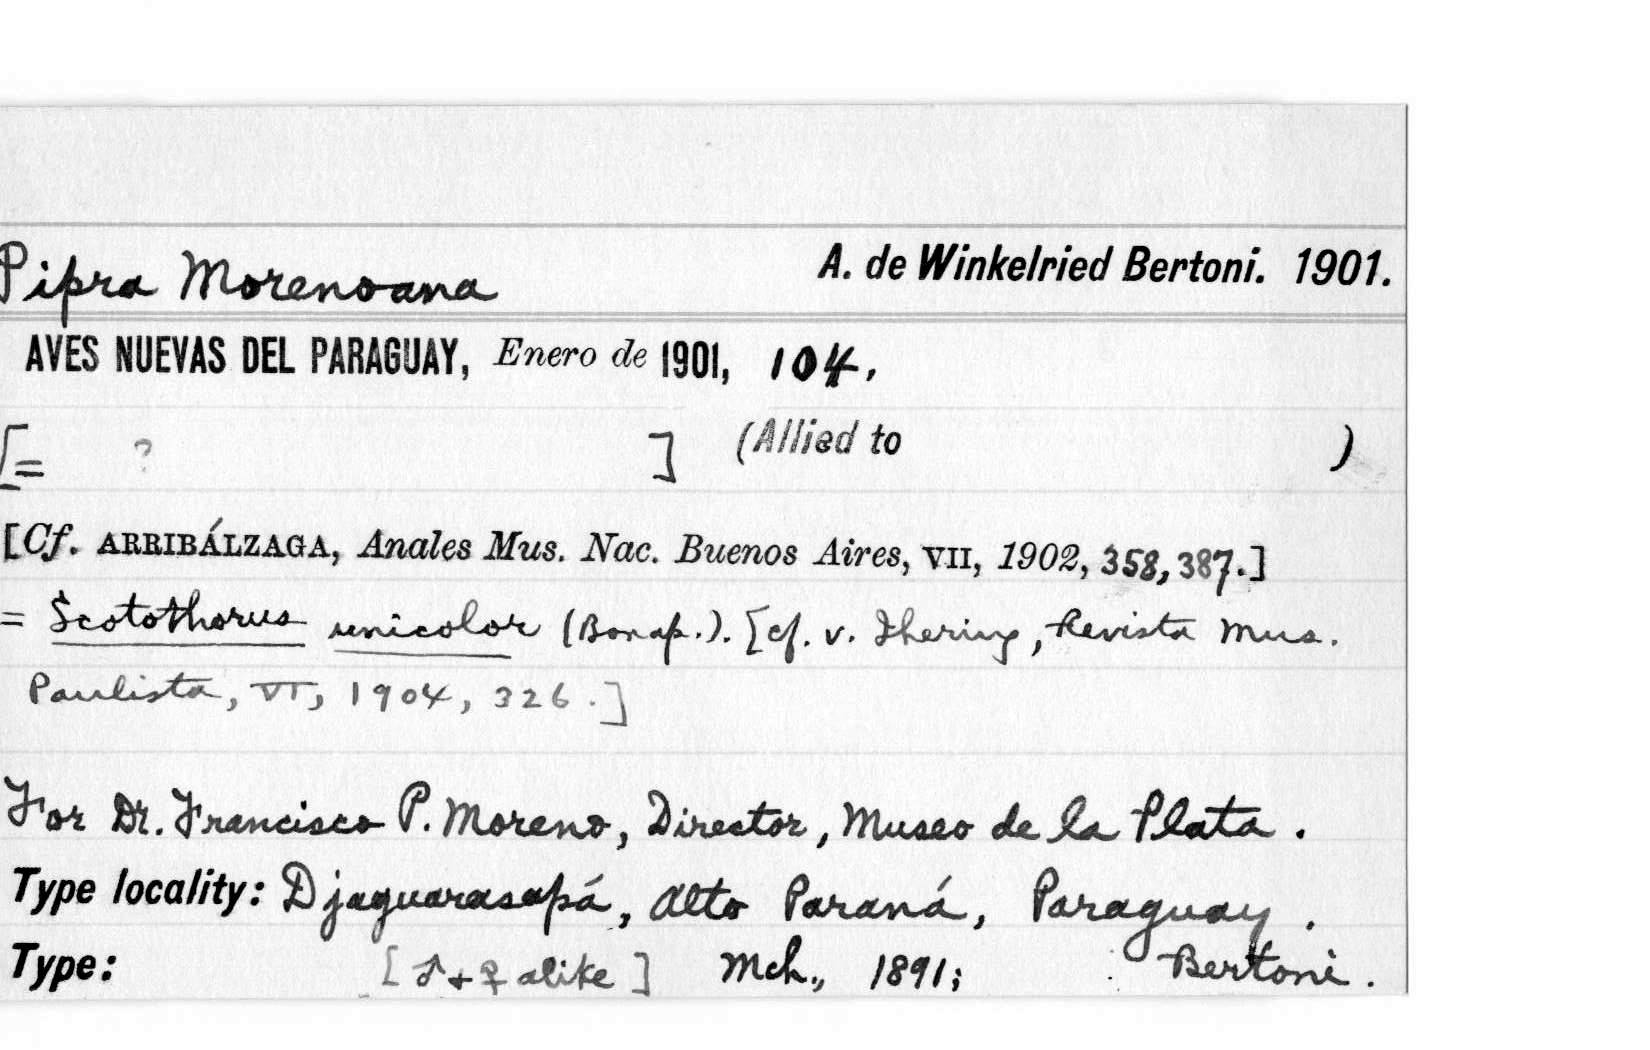 Pipra Morenoana A. de Winkelried Bertoni. 1901.
AVES NUEVAS DEL PARAGUAY, Enero de 1901, 104.
[= ? ] (Allied to )
[Cf. ARRIBÁLZAGA, Anales Mus. Nac. Buenos Aires, VII, 1902, 358, 387.]
= Scotothorus unicolor (Bonap.). [cf. v. Ihering, Revista Mus.
Paulista, VI, 1904, 326.]
For Dr. Francisco P. Moreno, Director, Museo de la Plata.
Type locality: Djaguarasapá, Alto Paraná, Paraguay.
Type: [♂ + ♀ alike] Mch., 1891; Bertoni.